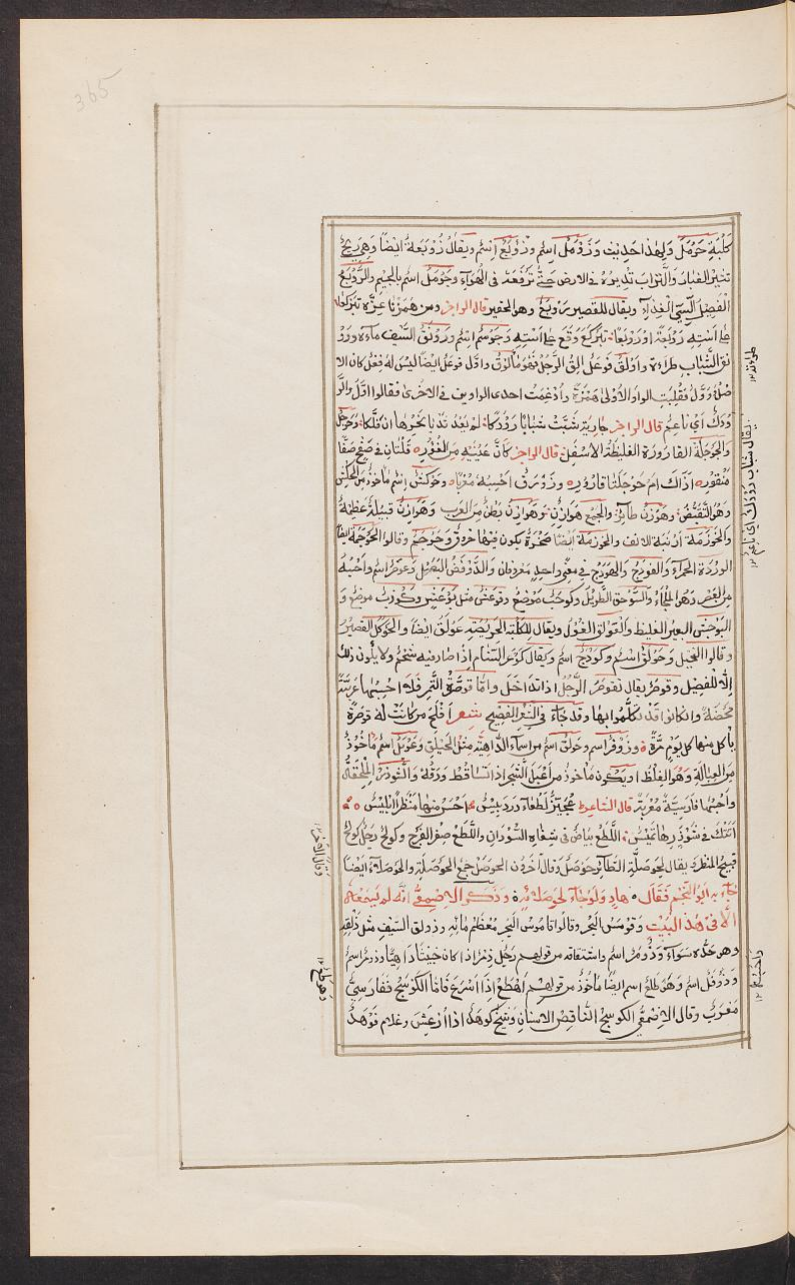 365
كَلْبَةِ حَوْمَل ولهذا حديث وَزَوْمَل اسم وزَوْبَع اسم ويقال زُوْبَعة ايضًا وهي ريح
تثير الغبار والتراب تديره في الارض حتى ترفعه في الهواء وجَوْمَل اسم بالجيم والرَّوْبَع
الفصيل السّيّ الغذاء ويقال للقصير رَوْبَع وهو الحقير قال الراجز ومن هَمَزْنا عِزَّه تَبَرْكَعا
على اسْتِه رَوْبَعَةً اوْ رَوْبَعا تبركع وقع على اسْتِه وجَوْسَم اسم ورَوْنَق السَّيف ماءه ورَوْ
نق الشَّباب طراءه واَوْلَق فَوْعَل اُلِقَ الرَّجُل فهو مَأْلُوق واوّل فوعل ايضًا ليس له فِعْل كان الا
صْل وَوَّل فقُلِبَت الواو الاُولى هَمْزَة وادغمت احدى الواوين في الاخرى فقالوا اوّل والرّ
وْدَك اي ناعم قال الراجز جارية شَبَّت شبابًا رَوْدَكا لم يَعْدُ ثديا نحرها ان فلّكا وحَوْجَل
والحَوْجَلَة القارورة الغليظة الاَسْفَل قال الراجز كأنّ عَيْنَيه من الغُؤور قَلْتانِ في صَفْح صَفا
مَنْقور اذاك ام حَوْجَلَتا قارور وزَوْرَق اَحْسِبُه مُعَرَّبا وحَوْكَش اسم مأخوذ من الحَكْش
وهو التَّقَبُّض وهَوْزَن طائر والجمع هَوازِن وهَوازِن بَطْن من العَرَب وهَوازِن قبيلة عظيمة
والخَوْرَمَة اَرْنَبَة الانف والخورمة ايضًا صَخْرَة يكون فيها خروق وحَوْجَم وقالوا الحَوْجَمة ايضا
الوَرْدَة الحَمْراء والفَوْدَج والهَوْدَج في معنًى واحدٍ معروفان والدَّوْفَص البَصَل وعَوْمَر اسم واحْسِبُه
وهو اللجاء والسَّوْحَق الطَّويل وكَوْكَب مَوْضِع وتَوْعَس مثل
البَوْحَش البعير الغليظ والعَوْلَق الغُول ويقال للكلبة الحريصة عَوْلَق ايضًا والحَوْكَل القصير
وقالوا البخيل وحَوْلَق اسم وكَوْدَح اسم ويقال كَوْعَر السَّنام اذا صار فيه شَحْم ولا يكون ذلك
الّا للفصيل وقَوْصَر يقال تقوصر الرَّجُل اذا تداخَل وامّا قوصَرَّة التَّمر فلا احْسِبُها عَرَبِيَّة
مَحْضَة وان كانوا قد تكلّموا بها وقد جاء في الشعر الفصيح شعر اَفْلَحَ من كانت له قَوْصَرَّة
يأكل منها كلّ يَوْمٍ مَرَّة وزَوْفَر اسم وخَوْلَق اسم من اسماء الدّاهية مثل الخَيْلَق وعَوْبَل اسم مأخوذ
من العَبالة وهو الغِلَظ او يكون مأخوذ من اَعْبَل الشجر اذا تساقط ورقه والشَّوْذَر المِلْحَفة
واحسبها فارسيّة مُعَرَّبة قال الشاعر عُجَيِّز لَطْعاء دَرْدَبيس اَحْسَن منها مَنْظَرًا اِبْليس
اَتَتْك في شَوْذَرِها تَميس اللَّطَع بياض في شفاه السُّودان واللَّطَع صغر الفرج وكَوْلَح رجل كولح
قبيح المنظر يقال لحَوْصَلَّة الطائر حَوْصَل وقال آخرون الحوصَل جمع الحَوْصَلة والحَوْصَلاء ايضا
جاء به ابو النجم فقال هادٍ ولو جاء لحوصلائه وذكر الاصمعي انّه لم يسمعه
الّا في هذا البيت وقَوْمَس البحر وقالوا قاموس البحر مُعْظَم مائه وذَوْلَق السَّيف مثل ذلقه
وهو حدّه سَواء وزَوْمَر اسم واشتقاقه من قولهم رجل زَمِر اذا كان خبيثًا داهيًا وزَوْمَر اسم
وذَوْفَل اسم وهَوْطَع اسم ايضًا مأخوذ من قولهم اَهْطَع اِذا اَسْرَع فأمّا الكَوْسَج ففارسيّ
معرّب وقال الاصمعي الكوسج الناقص الاسنان وشيخ كَوْهَد اذا ارعش وغلام فَوْهَد
يقال شباب رودك اي ناعم
واحسبه